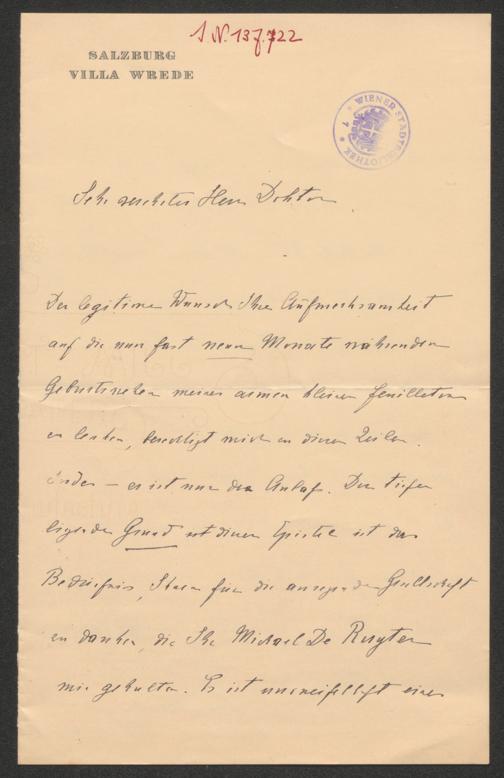 I.N. 137.722
SALZBURG
VILLA WREDE
WIENER STADTBIBLIOTHEK
Sehr verehrter Herr Doktor
Der legitime Wunsch Ihre Aufmerksamkeit
auf die nun fast neun Monate währenden
Geburtswehen meines armen kleinen Feuilletons
zu lenken, berechtigt mich zu diesen Zeilen.
Indes – es ist nur der Anlaß. Der tiefer
liegende Grund dieser Epistel ist das
Bedürfnis, Ihnen für die anregende Gesellschaft
zu danken, die Ihr Michael De Ruyter
mir gehalten. Es ist unzweifelhaft eines